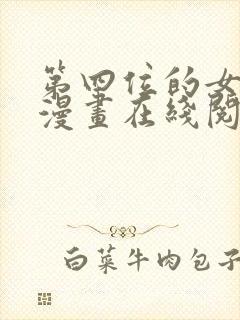 第四位的女
漫畫在綫閱
白菜牛肉包子